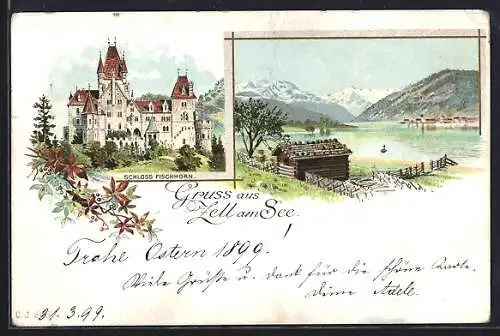 SCHLOSS FISCHHORN.
Gruss aus
Zell am See.
!
Frohe Ostern 1899.
Viele Grüße u. dank für die schöne Karte.
Deine Adele.
31.3.99.